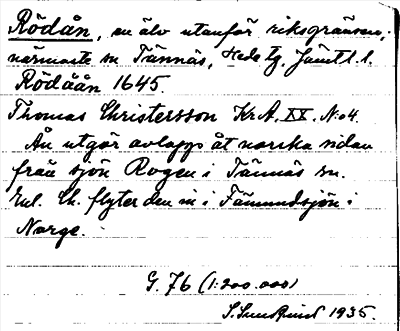 Rödån, en älv utanför riksgränsen,
närmaste sn Tännäs, Hede tg, Jämtl. l.
Rödåån 1645.
Thomas Christersson Kr A, XX, No 4.
Ån utgör avlopp åt norska sidan
från sjön Rogen i Tännäs sn.
Enl. Th. flyter den in i Fämundsjön i
Norge.
G. 76 (1:200.000)
S. Sundquist 1935.